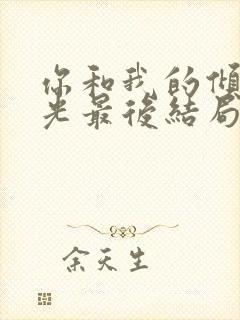 你和我的傾
光最後結局
余天生